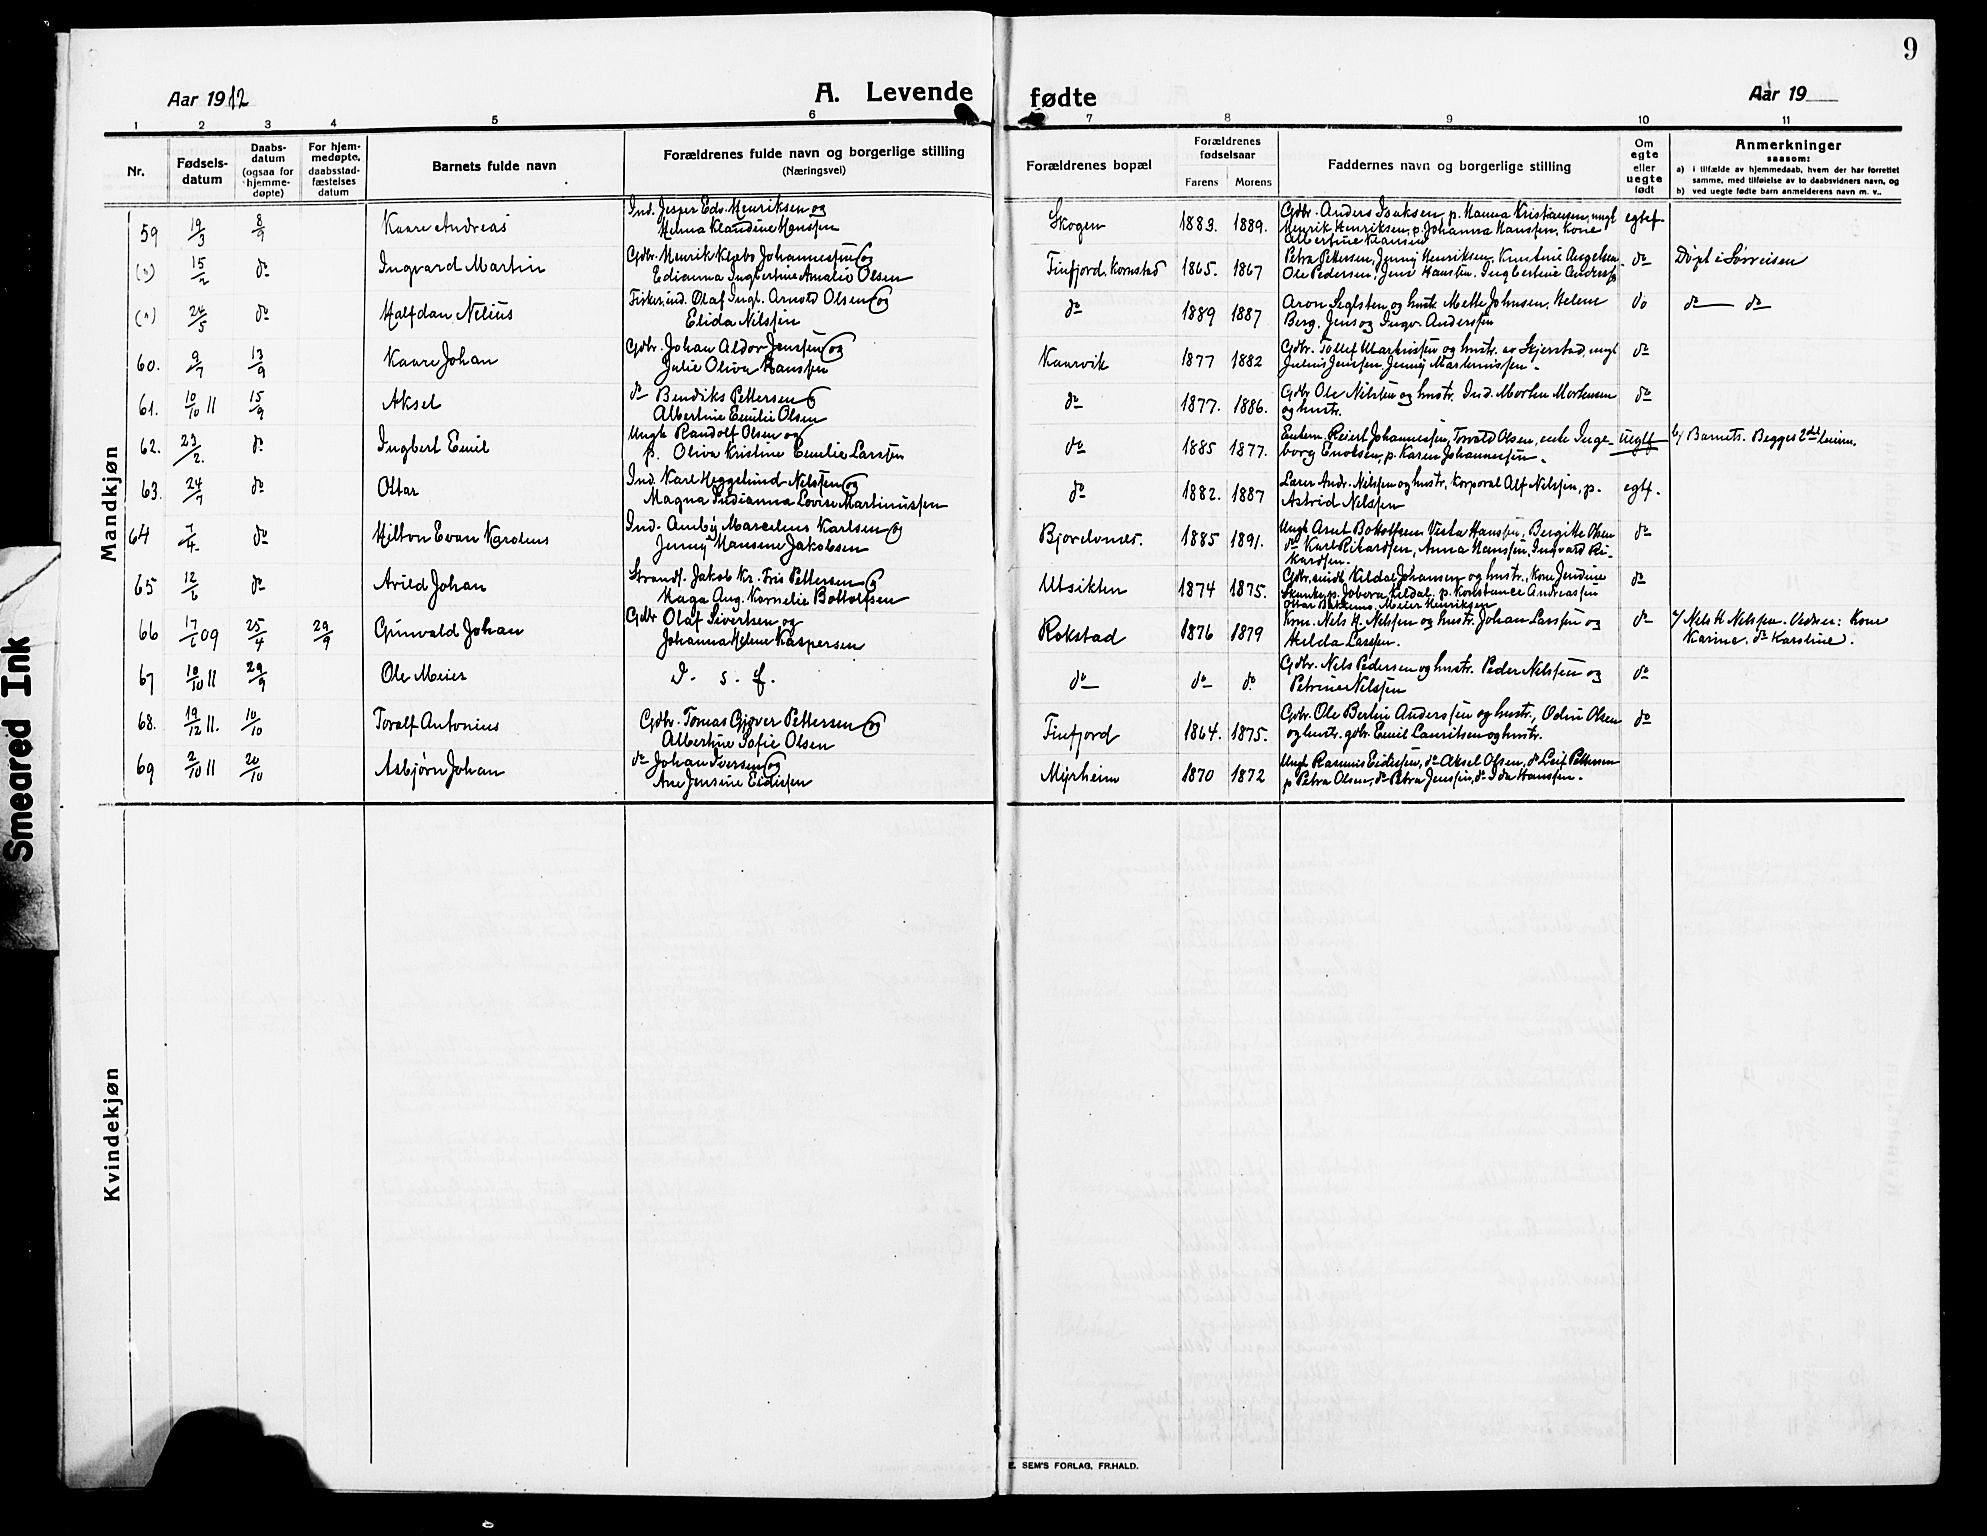 9
Aar 1912
A. Levende
fødte
Aar 19
1 2 3 4 5 6 7 8 9 10 11
Nr.
Fødsels-
datum
Daabs-
datum
(ogsaa for
hjemme-
døpte)
For hjem-
medøpte,
daabsstad-
fæstelses
datum
Barnets fulde navn
Forældrenes fulde navn og borgerlige stilling
(Næringsvei)
Forældrenes bopæl
Forældrenes
fødselsaar
Farens Morens
Faddernes navn og borgerlige stilling
Om
egte
eller
uegte
født
Anmerkninger
saasom:
a) i tilfælde av hjemmedaab, hvem der har forrettet
samme, med tilføielse av to daabsvidners navn, og
b) ved uegte fødte barn anmelderens navn m. v..
Mandkjøn
59 19/3 8/9 Kaare Andreas
Ind. Jesper Edv. Henriksen og
Helma Klaudine Hanssen
Skogen 1883. 1889.
Gdbr. Anders Isaksen, p. Hanna Kristiansen, ungk
Henrik Henriksen, p. Johanna Hanssen, Kone
Albertine Klausen
egtef.
(") 15/2 do Ingvard Martin
Gdbr. Henrik Klæbo Johannessen og
Edianna Ingbertine Amalie Olsen
Finfjord, Kornstad 1865. 1867
Petra Pettersen, Jenny Henriksen, Knutine Angelsen
Ole Pedersen, Jens Hansen, Ingbertine Anderss
do Døpt i Sørreisen
(") 24/5 do Halfdan Nelius
Fisker, ind. Olaf Ingl. Arnold Olsen og
Elida Nilssen
do 1889 1887
Aron Seglsten og hustr. Mette Johnsen, Helene
Berg, Jens og Ingv. Anderssen
do do do
60. 9/7 13/9 Kaare Johan
Gdbr. Johan Aldor Jenssen og
Julie Oliva Hanssen
Kaarvik 1877 1882
Gdbr. Tollef Martinssen og hustr. av Skjerstad, ungk
Julius Jenssen, Jenny Martinussen.
do
61. 10/10 11 15/9 Aksel
do Bendiks Pettersen og
Albertine Emilie Olsen
do 1877. 1886.
Gdbr Ole Nilssen og hustr. Ind. Morten Mortensen
og hustr.
do
62. 23/2. do Ingbert Emil
Ungk Randolf Olsen og
p. Oliva Kristine Emilie Larssen
do 1885 1877.
Enkem. Reiert Johannessen, Torvald Olsen, enke Inge-
borg Enoksen, p. Karen Johannessen.
uegtf b) Barnets. Begges 2det leierm.
63. 24/7 do Ottar
Ind. Karl Heggelund Nelssen og
Magna Indianna Lovise Martinussen
do 1882. 1887
Lærer Andr. Nilssen og hustr, Korporal Alf Nilssen, p.
Astrid Nelssen
egtf.
64 7/4. do Hilton Evan Karolius
Ind. Anby Marcelius Karlsen og
Jenny Hansene Jakobsen
Bjorelvnes. 1885 1891.
Ungk Arnt Botolfsen, Vesta Hanssen, Bergitte Olsen
do Karl Rikardsen, Anna Hanssen, Ingvard Ri-
kardsen.
do
65 12/6 do Arild Johan
Strands. Jakob Kr. Friis Pettersen og
Haga Aug. Kornelie Bottolfsen
Utsikten 1874 1875.
Gdbr. smidt Kildal Johansen og hustr., Kone Jendine
Skanke, p. Jobora Kildal, p. Konstance Andreassen
Ottar Bakkemo, Meier Henriksen
do
66 17/6 09 25/4 29/9 Grunvald Johan
Gdbr Olaf Sivertsen og
Johanna Helene Kaspersen
Rokstad 1876 1879
Kom. Nils H. Nelssen og hustr. Johan Larssen og
Hilda Larssen.
do a) Nels H Nelssen. Vidner: Kone
Karine, do Karoline.
67 10/10 11 29/9 Ole Meier
D. s. f.
do do do
Gdbr. Nels Pedersen og hustr. Peder Nelssen og
Petrine Nelssen
do
68. 19/12 11. 10/10 Toralf Antonius
Gdbr. Tomas Gjøver Pettersen og
Albertine Sofie Olsen
Finfjord 1864. 1875.
Gdbr. Ole Berlin Anderssen og hustr., Odin Olsen
og hustr. gdbr. Emil Lauritsen og hustr.
do
69 2/10 11 20/10 Asbjørn Johan
do Johan Iversen og
Ane Jensine Eidissen
Myrheim 1870 1872
Ungk Rasmus Eidissen, do Aksel Olsen, do Leif Pettersen
p Petra Olsen, do Petra Jenssen, do Ida Hanssen.
Kvindekjøn
Smeared Ink
E. SEM'S FORLAG, FR.HALD.